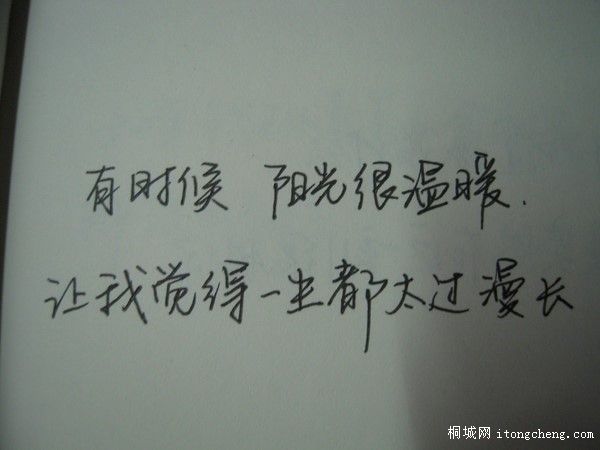 有时候 阳光很温暖.
让我觉得一生都太过漫长
桐城网 itongcheng.com